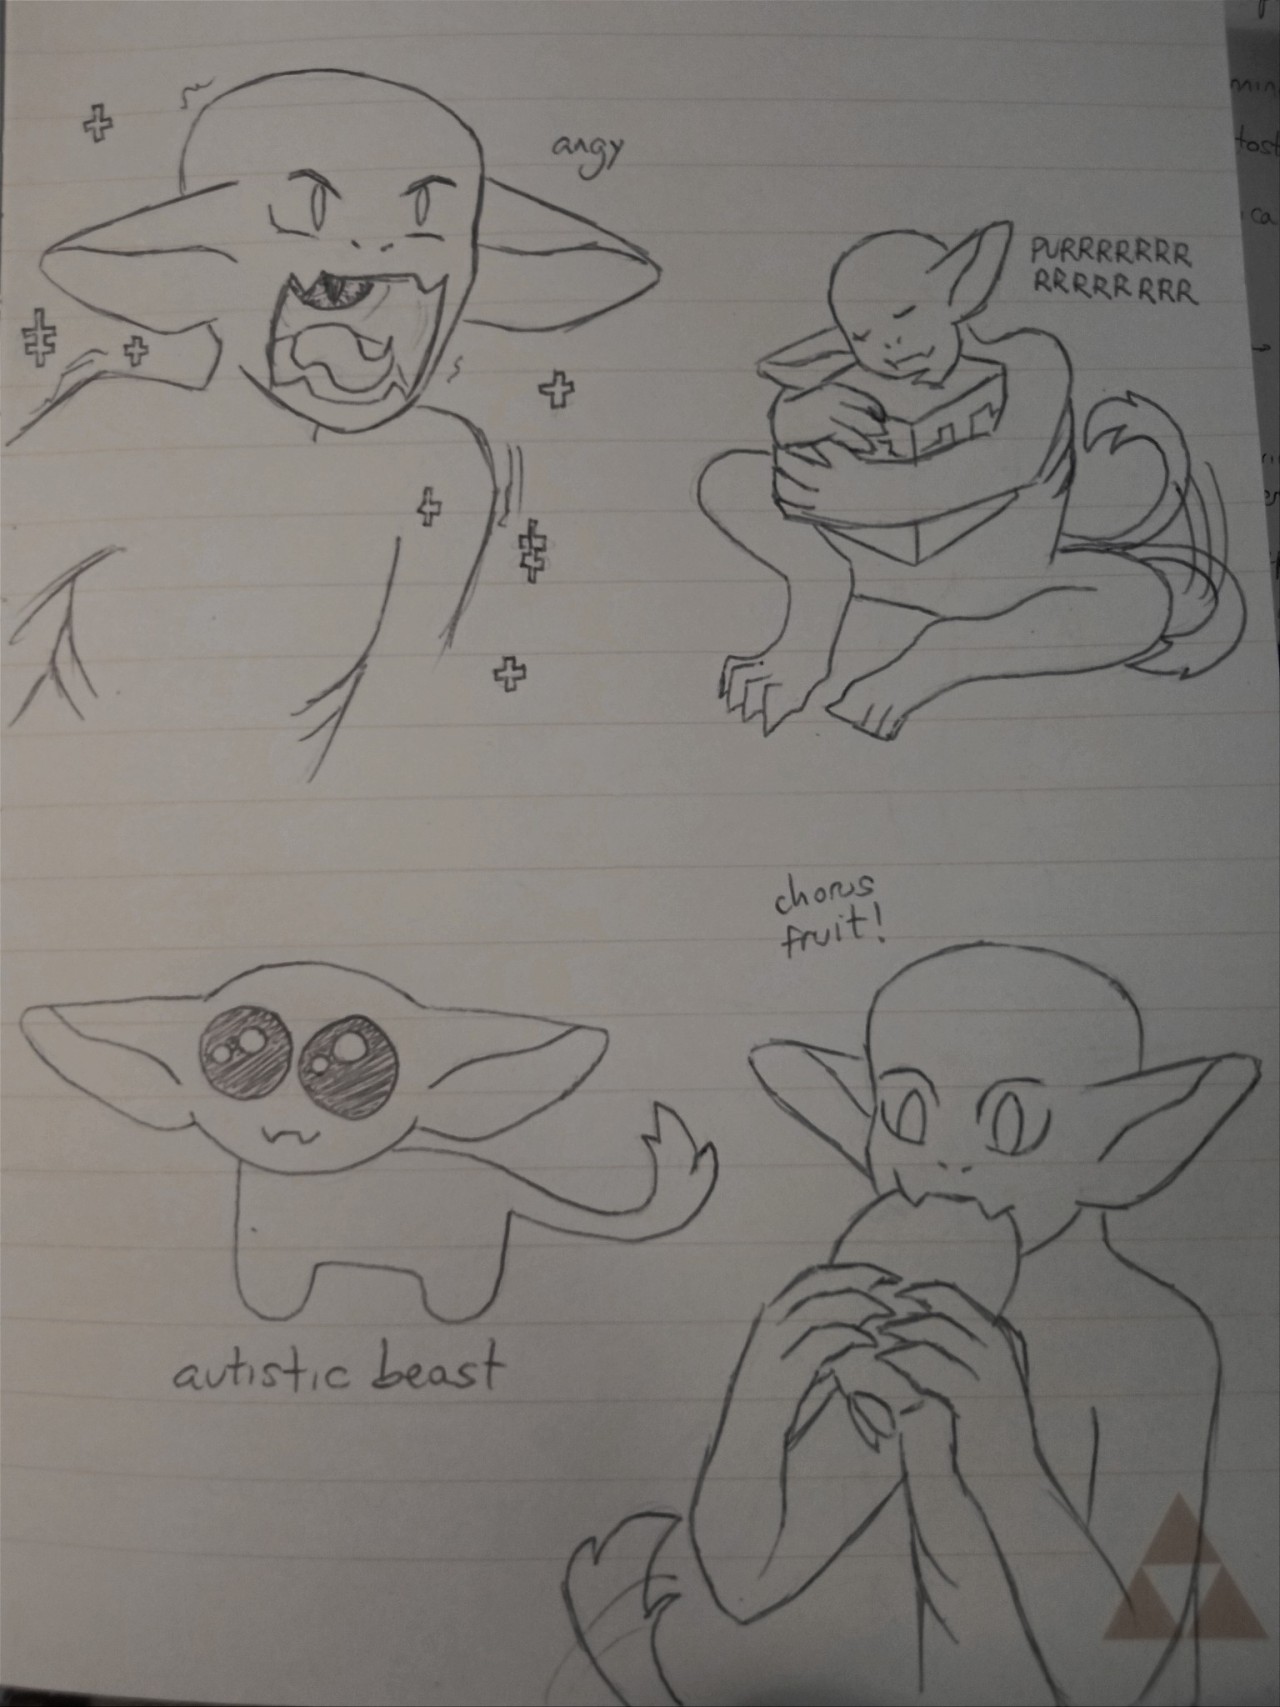 angy
PURRRRRRR
RRRRRRRR
chorus
fruit!
autistic beast